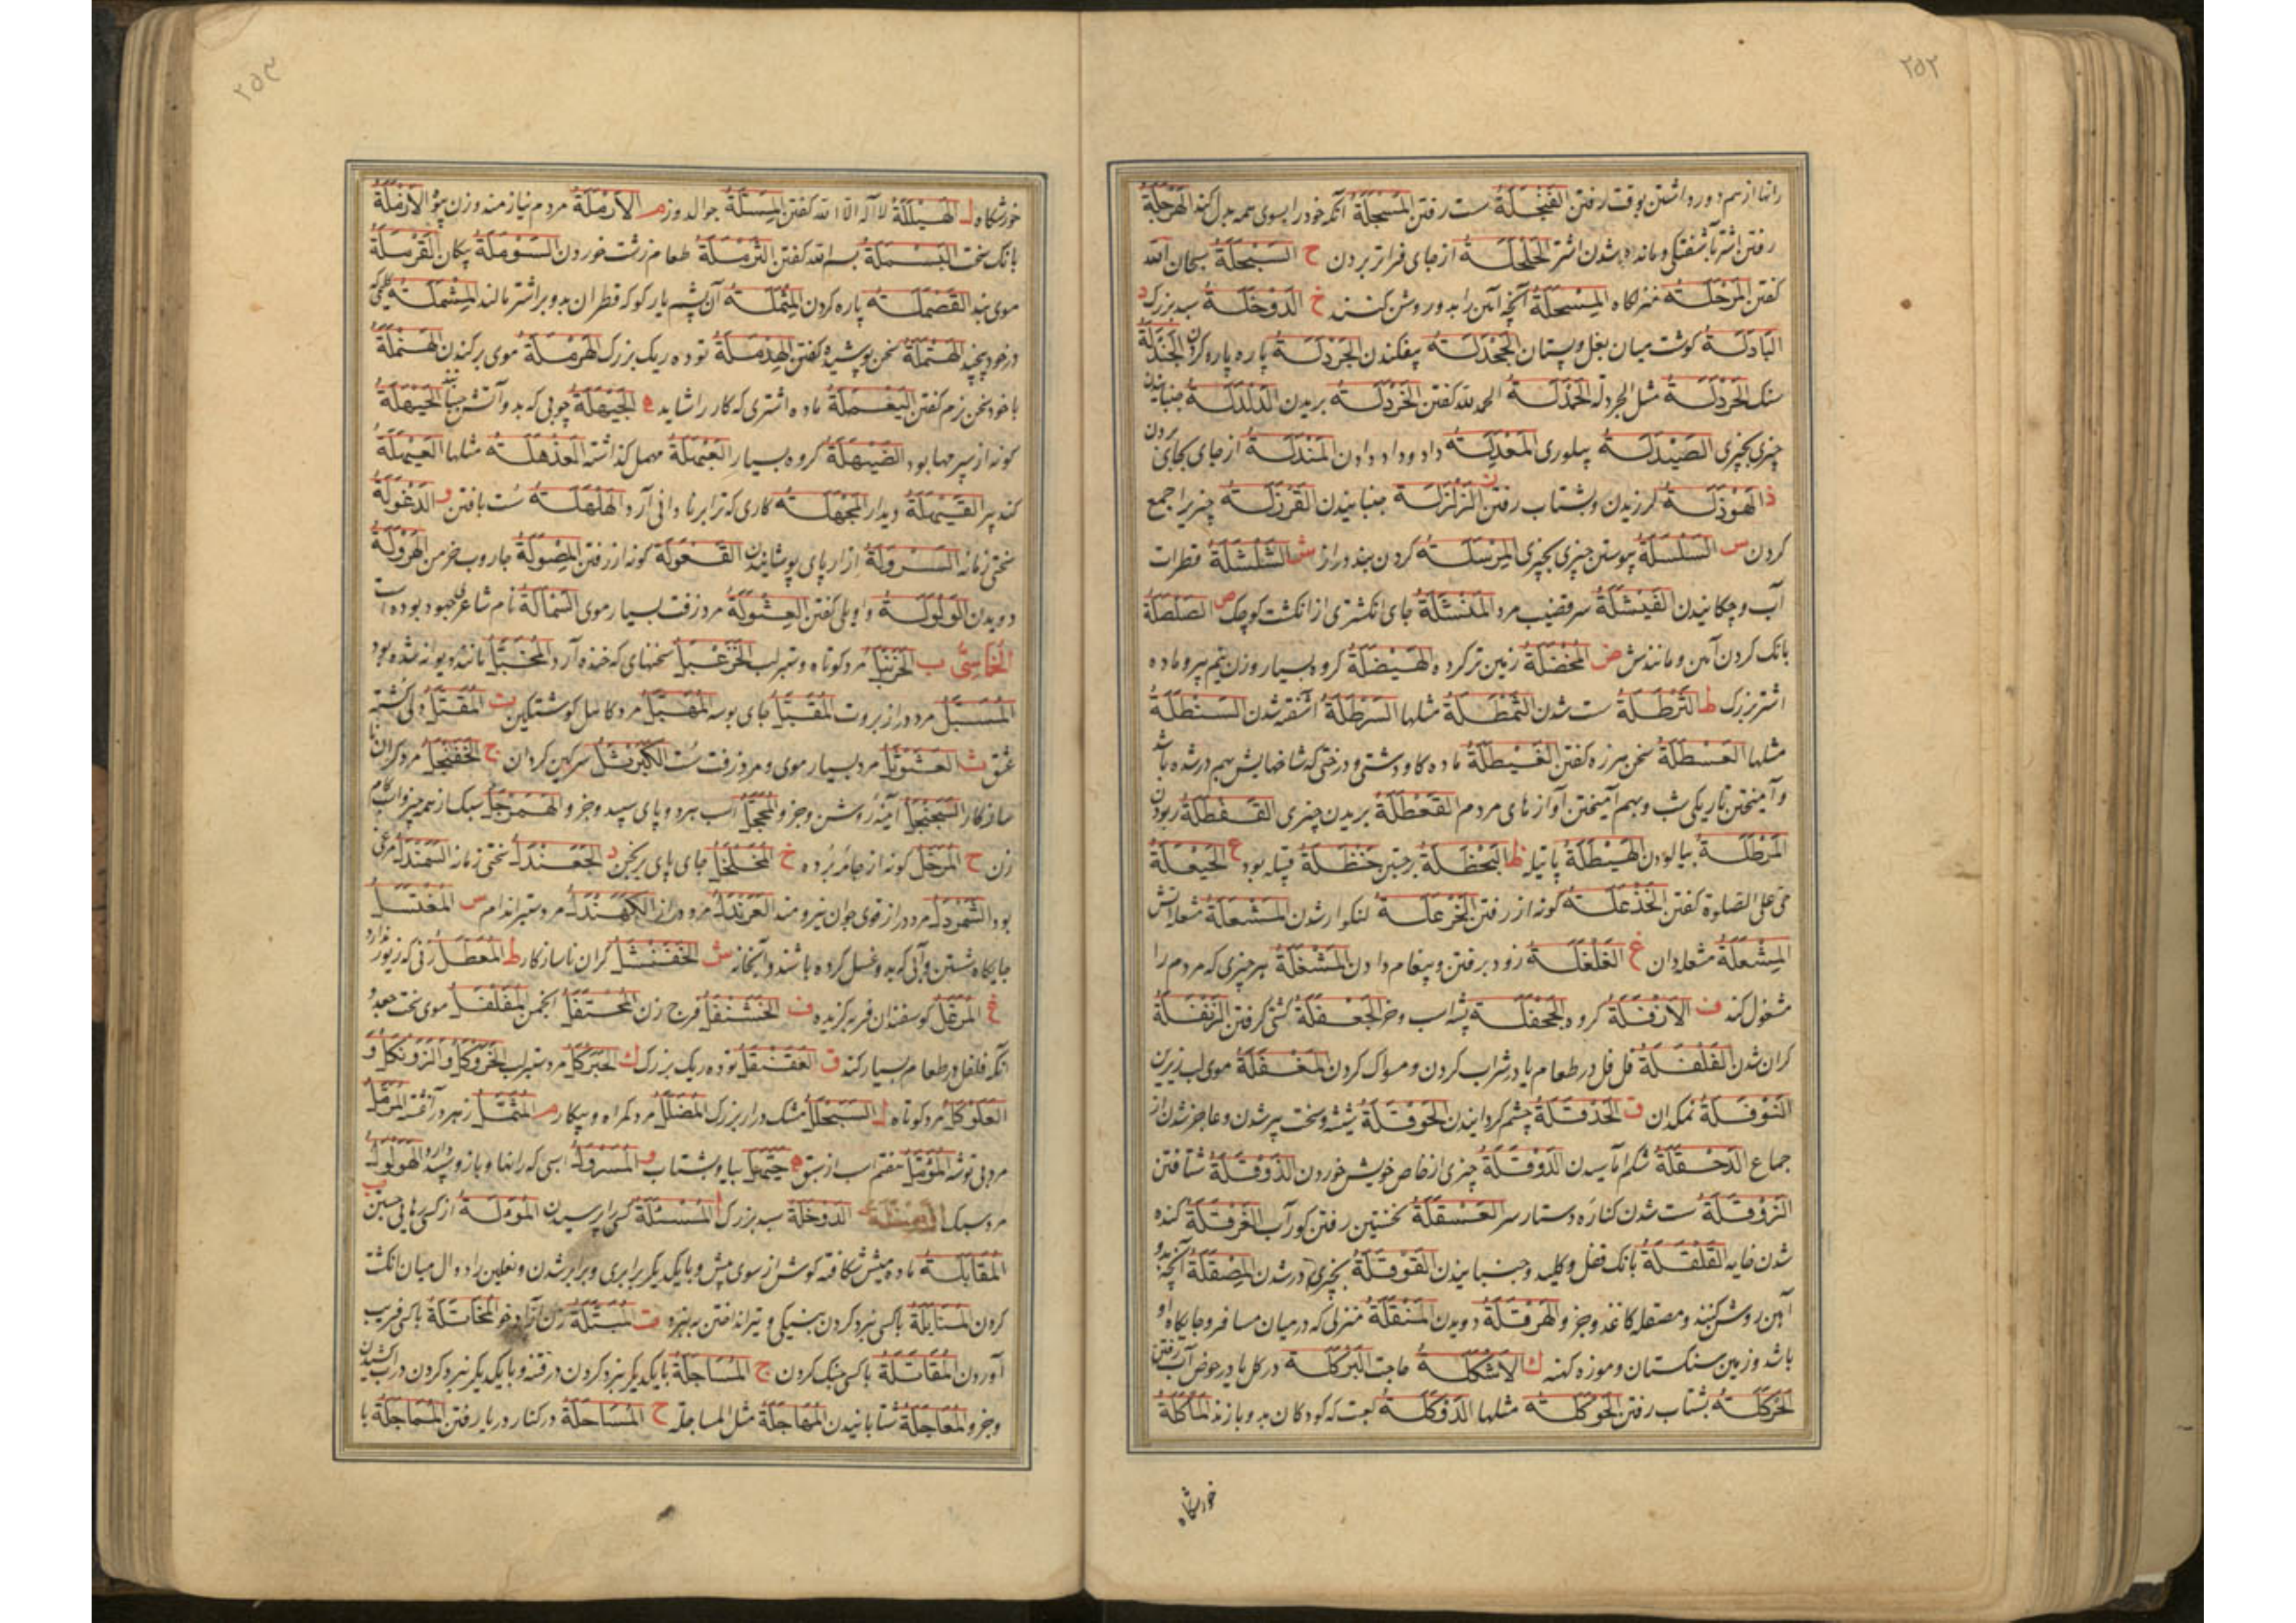 ٢٥٢
رانها از هم دور داشتن بوقت رفتن الفَنْجَلَةُ سست رفتن المُسْجَلَةُ آنکه خود را بسوی همه بدل کند الهَرْجَلَةُ
رفتن اشتر بآشفتگی و مانده شدن اشتر الحَلْحَلَةُ از جای فراتر بردن ح السَبْحَلَةُ سبحان الله
کفتن المَرْحَلَةُ منزلکاه المِسْحَلَةُ آنچه آهن را بدو روشن کنند خ الدَوْخَلَةُ سبد بزرک د
البَادَلَةُ کوشت میان بغل و پستان الجَحْدَلَةُ بیفکندن الجَرْدَلَةُ پاره پاره کردن الجَنْدَلَةُ
سنک الخَرْدَلَةُ مثل الجردلة الحَمْدَلَةُ الحمد لله کفتن الخَرْدَلَةُ بریدن الدَلْدَلَةُ جنبانیدن
چیزی بچیزی الصَيْدَلَةُ پیلوری المَعْدِلَةُ داد و داد دادن المَنْدَلَةُ از جای بجای بردن
ذ الهَوْذَلَةُ لرزیدن و بشتاب رفتن ز الزَلْزَلَةُ جنبانیدن القَرْزَلَةُ چیزیرا جمع
کردن س السَلْسَلَةُ پیوستن چیزی بچیزی المَرْسَلَةُ کردن بند دراز ش الشَلْشَلَةُ قطرات
آب و چکانیدن الفَيْشَلَةُ سر قضیب مرد المَنْشَلَةُ جای انکشتری از انکشت کوچک ص الصَلْصَلَةُ
بانک کردن آهن و مانندش ض المُخْضَلَةُ زمین تر کرده الهَيْضَلَةُ کروه بسیار و زن نیم پیر و ماده
اشتر بزرک ط الثَرْطَلَةُ سست شدن الثَمْطَلَةُ مثلها السَرْطَلَةُ آشفته شدن السَنْطَلَةُ
مثلها العَسْطَلَةُ سخن هرزه کفتن الغَيْطَلَةُ ماده کاو دشتی و درختی که شاخهایش بهم درشده باشد
و آمیختن تاریکی شب و بهم آمیختن آوازهای مردم القَعْطَلَةُ بریدن چیزی القَفْطَلَةُ ربودن
المَرْطَلَةُ بیالودن الهَيْطَلَةُ پاتیله ظ البَحْظَلَةُ برجستن حَنْظَلَةُ قبیله بود ع الحَيْعَلَةُ
حی علی الصلوة کفتن الخَذْعَلَةُ کونه از رفتن الخَزْعَلَةُ لنکوار شدن المَشْعَلَةُ شعله آتش
المِشْعَلَةُ مشعلدان غ الغَلْغَلَةُ زود برفتن و پیغام دادن المَشْغَلَةُ هر چیزی که مردم را
مشغول کند ف الأَزْفَلَةُ کروه الجَحْفَلَةُ پشه اسب و خر الجَعْفَلَةُ کشتی کرفتن الزَنْفَلَةُ
کران شدن الفَلْفَلَةُ فلفل در طعام یا در شراب کردن و مسواک کردن المَغْفَلَةُ موی لب زیرین
النَوْفَلَةُ نمکدان ق الحَدْقَلَةُ چشم کردانیدن الحَوْقَلَةُ شیشه و سخت پیر شدن و عاجز شدن از
جماع الدَحْقَلَةُ شکم آماسیدن الدَوْقَلَةُ چیزی از خاص خویش خوردن الذَوْقَلَةُ شتافتن
الزَوْقَلَةُ سست شدن کناره دستار سر العَسْقَلَةُ نخستین رفتن کور آب الغَرْقَلَةُ کنده
شدن خایه القَلْقَلَةُ بانک قفل و کلید و جنبانیدن القَوْقَلَةُ بچیزی درشدن المِصْقَلَةُ آنچه بدو
آهن روشن کنند و مصقله کاغذ و جز و الهَرْقَلَةُ دویدن المَنْقَلَةُ منزلی که در میان مسافر و جایکاه او
باشد و زمین سنکستان و موزه کهنه ك الأَشْكَلَةُ حاجت البَرْكَلَةُ در کل یا در حوض آب رفتن
الحَرْكَلَةُ بشتاب رفتن الحَوْكَلَةُ مثلها الدَوْكَلَةُ لعبت که کودکان بدو بازند المَأْكَلَةُ
خورشکاه
٢٥٣
خورشکاه ل الهَيْلَلَةُ لا اله الا الله کفتن المِسَلَّةُ جوالدوز م الأَرْمَلَةُ مردم نیازمند و زن بیوه الأَزْمَلَةُ
بانک سخت البَسْمَلَةُ بسم الله کفتن الثَرْمَلَةُ طعام زشت خوردن السَوْمَلَةُ پنکان القَرْمَلَةُ
موی بند القَصْمَلَةُ پاره کردن المِثْمَلَةُ آن پشم پاره کو که قطران بدو بر اشتر مالند المِشْمَلَةُ کلیمی که
در خود پیچند الهَتْمَلَةُ سخن پوشیده کفتن الهِدْمَلَةُ توده ریک بزرک الهَرْمَلَةُ موی برکندن الهَنْمَلَةُ
با خود سخن نرم کفتن اليَعْمَلَةُ ماده اشتری که کار را شاید ه الجَيْهَلَةُ چوبی که بدو آتش جنبانند الحَيْهَلَةُ
کونه از سپرمها بود الضَيْهَلَةُ کروه بسیار العَبْهَلَةُ مهمل کذاشته العَذْهَلَةُ مثلها العَيْهَلَةُ
کنده پیر القَيْهَلَةُ دیدار المَجْهَلَةُ کاری که ترا برنادانی آرد الهَلْهَلَةُ سست بافتن و الدَغْوَلَةُ
سختی زمانه السَرْوَلَةُ ازار پای پوشانیدن القَعْوَلَةُ کونه از رفتن المِصْوَلَةُ جاروب خرمن الهَرْوَلَةُ
دویدن الوَلْوَلَةُ واویلی کفتن العِثْوَلَةُ مرد زفت بسیار موی السَمَأَلَةُ نام شاعری جهود بوده است
الخُمَاسِيُّ ب الحَزَنْبَلُ مرد کوتاه و ستبر لب الخُزَعْبَلُ سخنهای که خنده آرد المُخَبَّلُ مانند دیوانه شده بود
المُسَبَّلُ مرد دراز بروت المُقَبَّلُ جای بوسه المُهَبَّلُ مرد کاهل کوشتکین ت المُقَتَّلُ دلی کشته
عشق ث العَثَوْثَلُ مرد بسیار موی و مرد زفت سست الكَبَرْثَلُ سرکین کردان ج الخَفَنْجَلُ مرد کران نا
سازکار السَجَنْجَلُ آینه روشن و جز و المُحَجَّلُ اسب هر دو پای سپید و جز و الهَمَرْجَلُ سبک از همه چیز و اسب کام
زن ح المُرَحَّلُ کونه از جامه برده خ المُخَلْخَلُ جای پای برنجن د الجَعَنْدَلُ سختی زمانه السَمَنْدَلُ مرغی
بود الشَمَرْدَلُ مرد دراز قوی جوان نیرومند العَرَنْدَلُ مرد دراز الكَهَنْدَلُ مرد ستبر اندام س المُغْتَسَلُ
جایکاه شستن و آبی که بدو غسل کرده باشند و آبخانه ش الخَفَنْشَلُ کران ناسازکار ط المُعَطَّلُ زنی که زیور ندارد
غ المُرَغَّلُ کوسفندان فربه کزیده ف الخَشَنْفَلُ فرج زن المُحْتَفَلُ انجمن المُفَلْفَلُ موی سخت جعد و
آنکه فلفل در طعام بسیار کند ق العَقَنْقَلُ توده ریک بزرک ك الحَبَرْكَلُ مرد ستبر لب الحَزَوْكَلُ و الزَوَنْكَلُ و
العَلَوْكَلُ مرد کوتاه ل السَبَحْلَلُ مشک دراز بزرک المُضَلَّلُ مرد کمراه و بیکار م المُثَمَّلُ زهر در آغشته المُرَمَّلُ
مرد بی توشه المُؤَمَّلُ هفتم اسب از سبق ه حَيَّهَلَ بیا و بشتاب و المُسَرْوَلُ اسبی که رانها و بازو سپید دارد الهَوَلْوَلُ
مرد سبک الدَوْخَلَةُ سبد بزرک ا المُسَئَلَةُ کسی را پرسیدن المُوَءَلَةُ از کسی رهایی جستن ب
المُقَابَلَةُ ماده میش شکافته کوش از سوی پیش و با یکدیکر برابری و برابر شدن و نعلین را دوال میان انکشت
کردن المُنَابَلَةُ با کسی نبرد کردن بنیکی و تیر انداختن به نبرد ت المُبَتَّلَةُ زن آزاد و جز المُخَاتَلَةُ با کسی فریب
آوردن المُقَاتَلَةُ با کسی جنک کردن ج المُسَاجَلَةُ با یکدیکر نبرد کردن در فتنه و با یکدیکر نبرد کردن در آب کشیدن
و جز و المُعَاجَلَةُ شتابانیدن المُهَاجَلَةُ مثل المساجلة ح المُسَاحَلَةُ در کنار دریا رفتن المُمَاحَلَةُ با